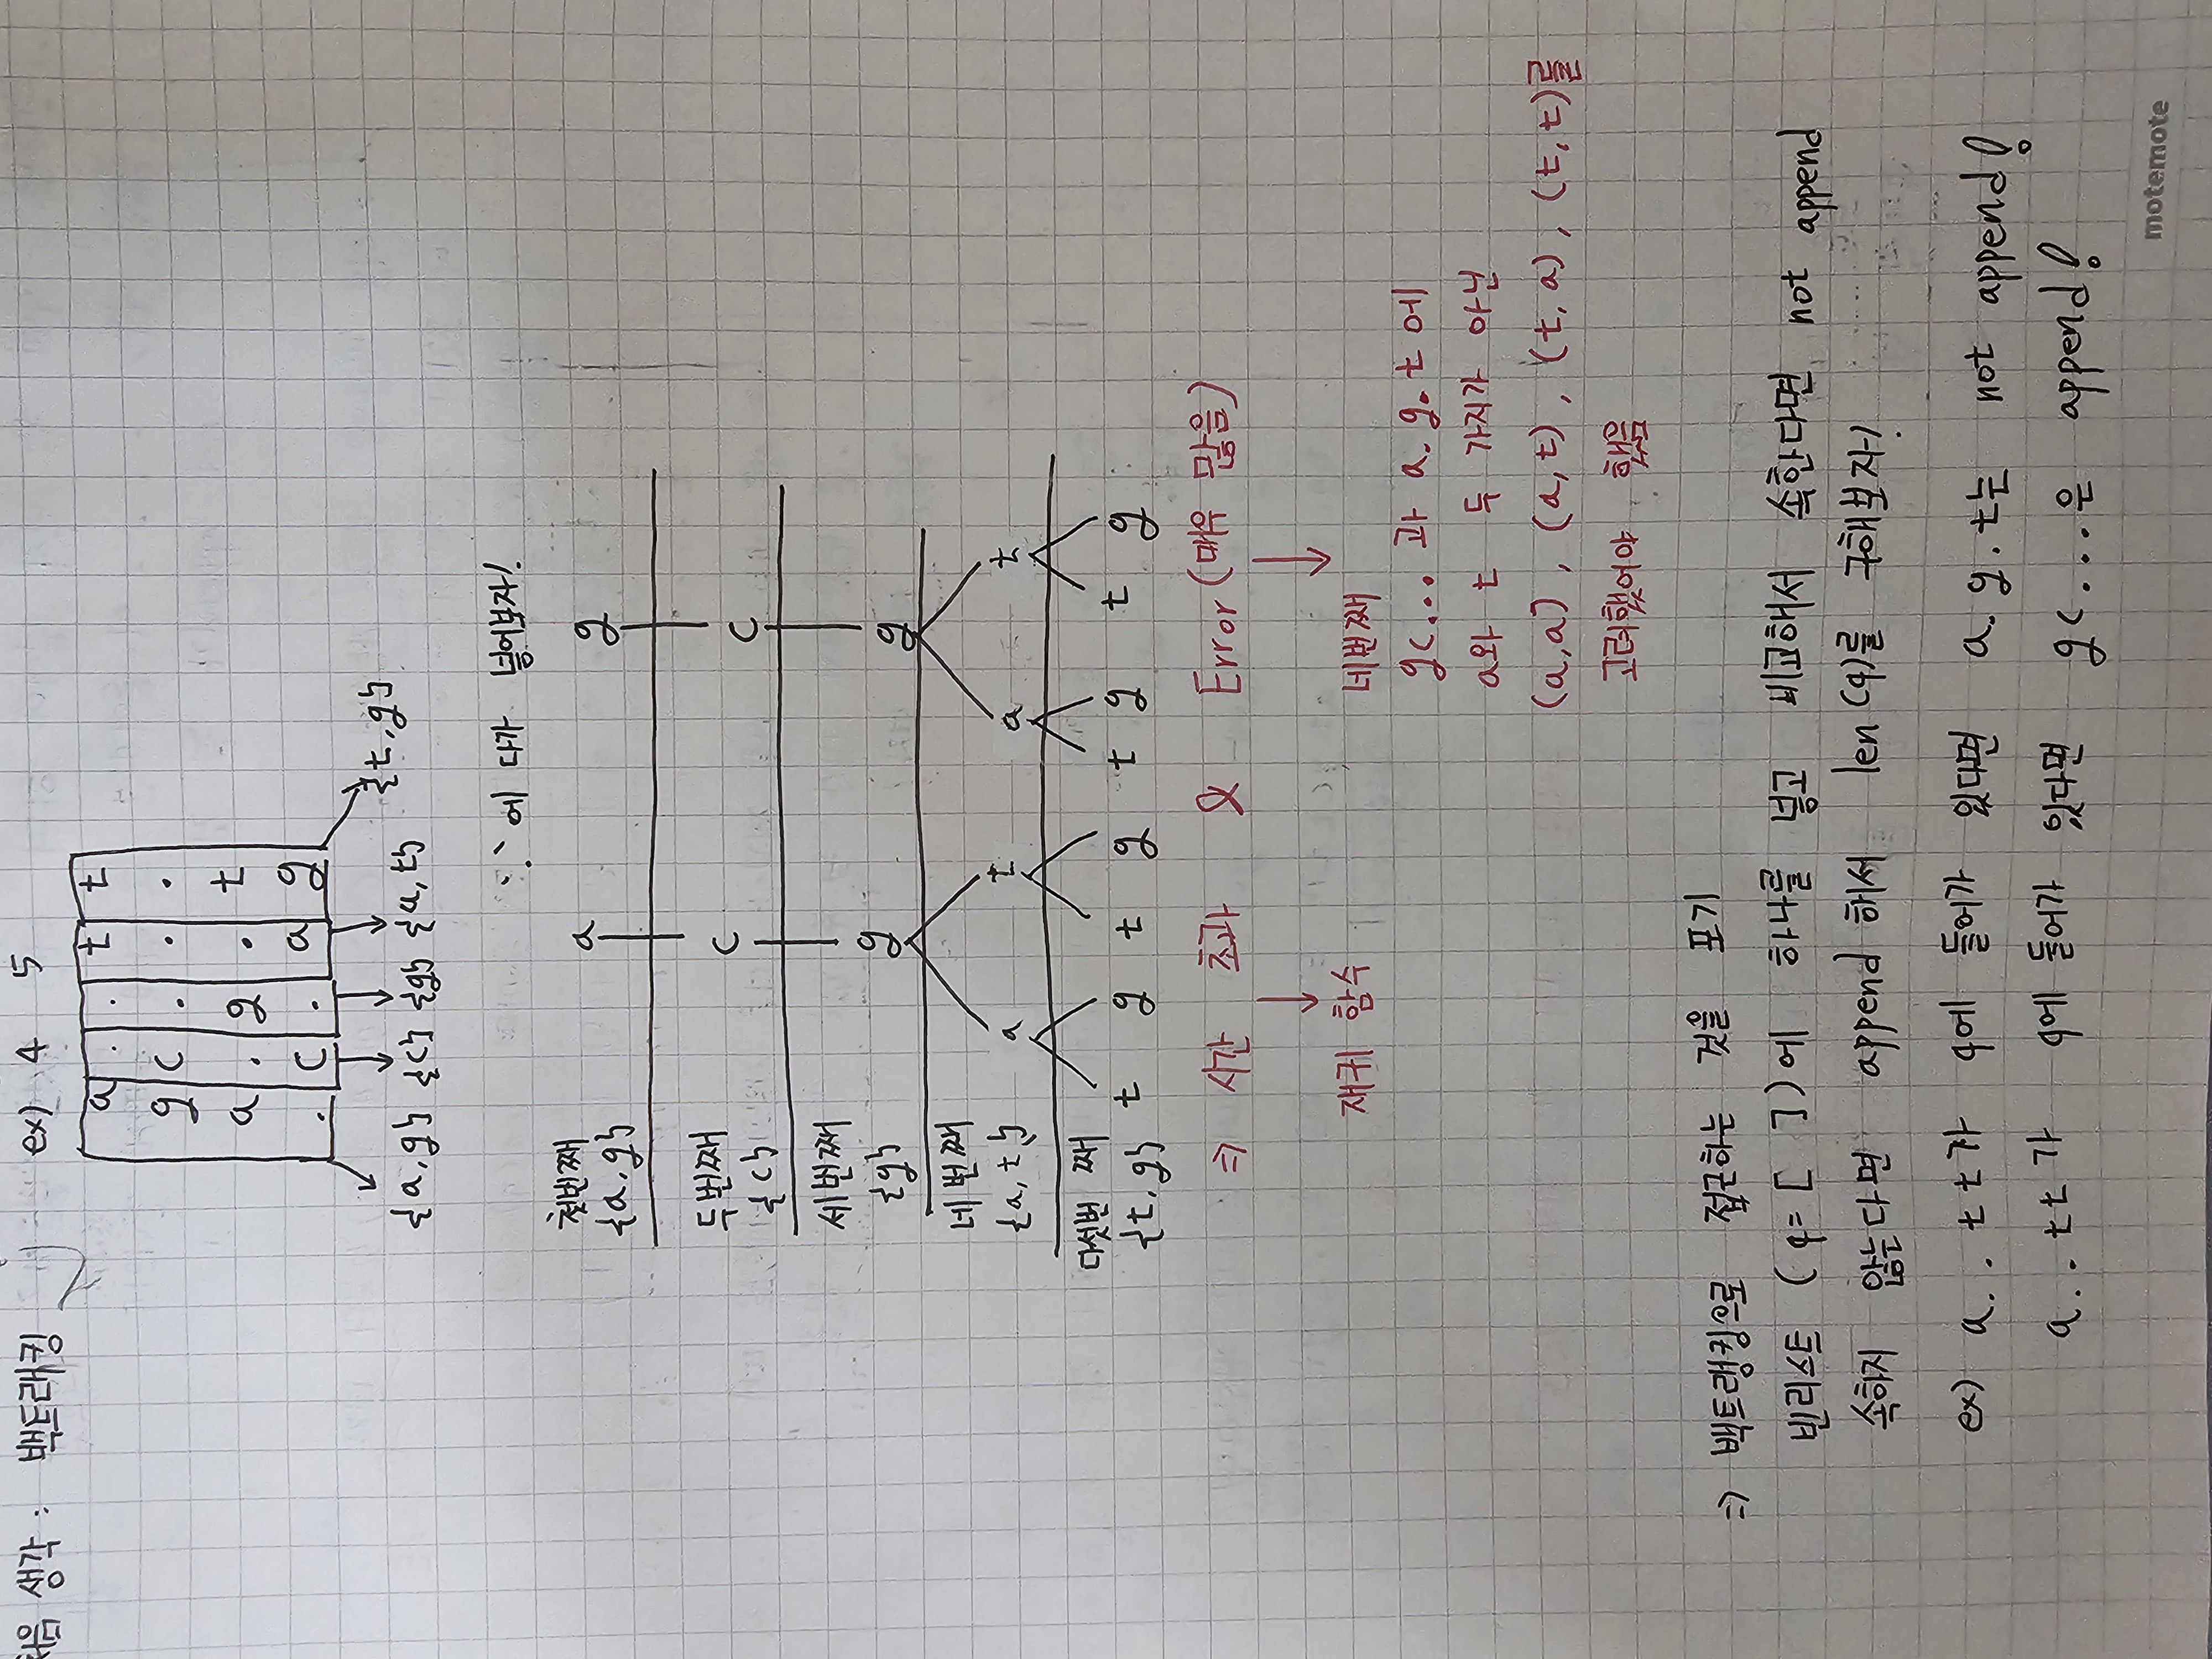 처음 생각 : 백트래킹
ex) 4 5
a . . t t
g c . . .
a . g . t
. c . a g
{a, g} {c} {g} {a, t} {t, g}
'.'에 다가 넣어보자!
첫번째 a g
{a, g}
두번째 c c
{c}
세번째
{g} g g
네번째
{a, t} a t a t
다섯번째
{t, g} t g t g t g t g
⇒ 시간 초과 & Error (매우 많음)
재귀 함수
네번째
gc... 과 a.g.t에
a와 t 두 가지가 아닌
(a,a), (a,t), (t,a), (t,t)를
고려했어야 했음
⇒ 백트랭킹으로 접근하는 것을 포기
빈리스트 (q= [ ])에 하나를 넣고 비교해서 속한다면 not append
속하지 않는다면 append 해서 len(q)를 구해보자!
ex) a..tt가 q에 들어가 있다면 a.g.t는 not append!
a..tt가 q에 들어가 있다면 gc...은 append!
motemote